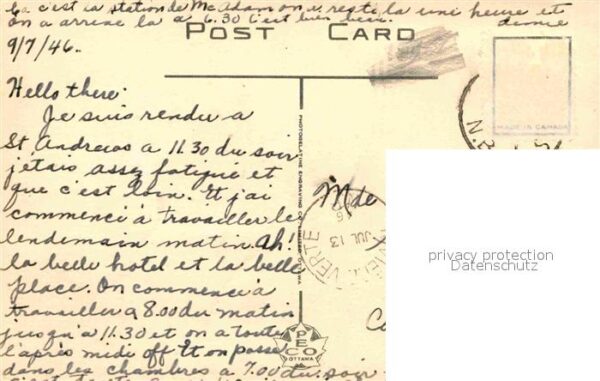 Ca c'est la station de McAdam on reste la une heure et
on a arrive la a 6.30 c'est bien beau. demie
POST CARD
9/7/46.
Hello there:
Je suis rendu a
St Andrews a 11.30 du soir
jetais assez fatigué et
que c'est loin. Et j'ai
commencé a travailler le
lendemain matin. Ah!
la belle hotel et la belle
place. On commence a
travailler a 8.00 du matin
jusqu'a 11.30 et on a toute
l'après midi off et on passe
dans les chambres a 7.00 du soir
PHOTOGELATINE ENGRAVING
OTTAWA
PECO
OTTAWA
MADE IN CANADA
N.B.
Mde
VERTE
JUL 13
privacy protection
Datenschutz